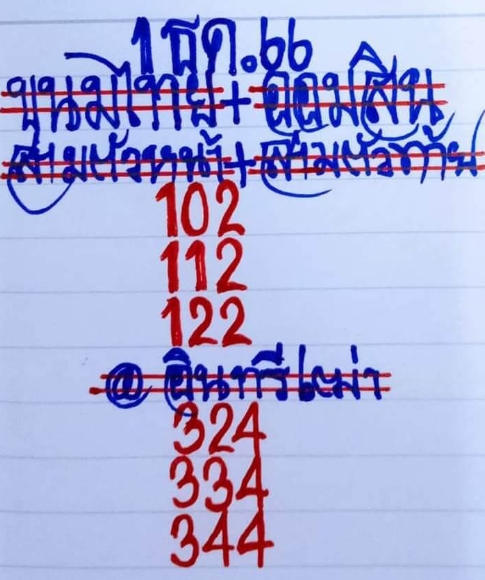 1 ธค.66
ขนมไทย+ออมสิน
สามตัวหน้า+สามตัวท้าย
102
112
122
@ อินทรีเฒ่า
324
334
344